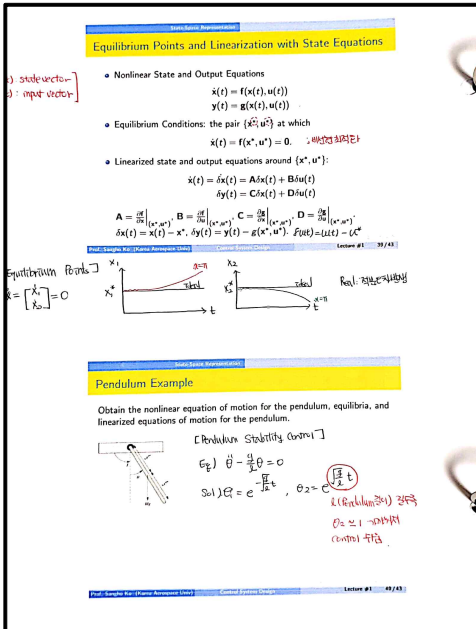 State-Space Representation
Equilibrium Points and Linearization with State Equations
: state vector
: input vector
• Nonlinear State and Output Equations
ẋ(t) = f(x(t), u(t))
y(t) = g(x(t), u(t))
• Equilibrium Conditions: the pair {x*, u*} at which
ẋ(t) = f(x*, u*) = 0.
• Linearized state and output equations around {x*, u*}:
ẋ(t) = δẋ(t) = Aδx(t) + Bδu(t)
δy(t) = Cδx(t) + Dδu(t)
A = ∂f/∂x|(x*,u*), B = ∂f/∂u|(x*,u*), C = ∂g/∂x|(x*,u*), D = ∂g/∂u|(x*,u*),
δx(t) = x(t) − x*, δy(t) = y(t) − g(x*, u*), δu(t) = u(t) − u*
Prof. Sangho Ko (Korea Aerospace Univ) Control System Design Lecture #1 39/43
Equilibrium Points]
ẋ = [ẋ₁ ẋ₂] = 0
x₁
x₁*
ideal
t
x₂
x₂*
ideal
t
Real :
State-Space Representation
Pendulum Example
Obtain the nonlinear equation of motion for the pendulum, equilibria, and
linearized equations of motion for the pendulum.
[Pendulum Stability Control]
Eq) θ̈ − g/l θ = 0
Sol) θ₁ = e^(−√(g/l) t), θ₂ = e^(√(g/l) t)
Control
Prof. Sangho Ko (Korea Aerospace Univ) Control System Design Lecture #1 40/43